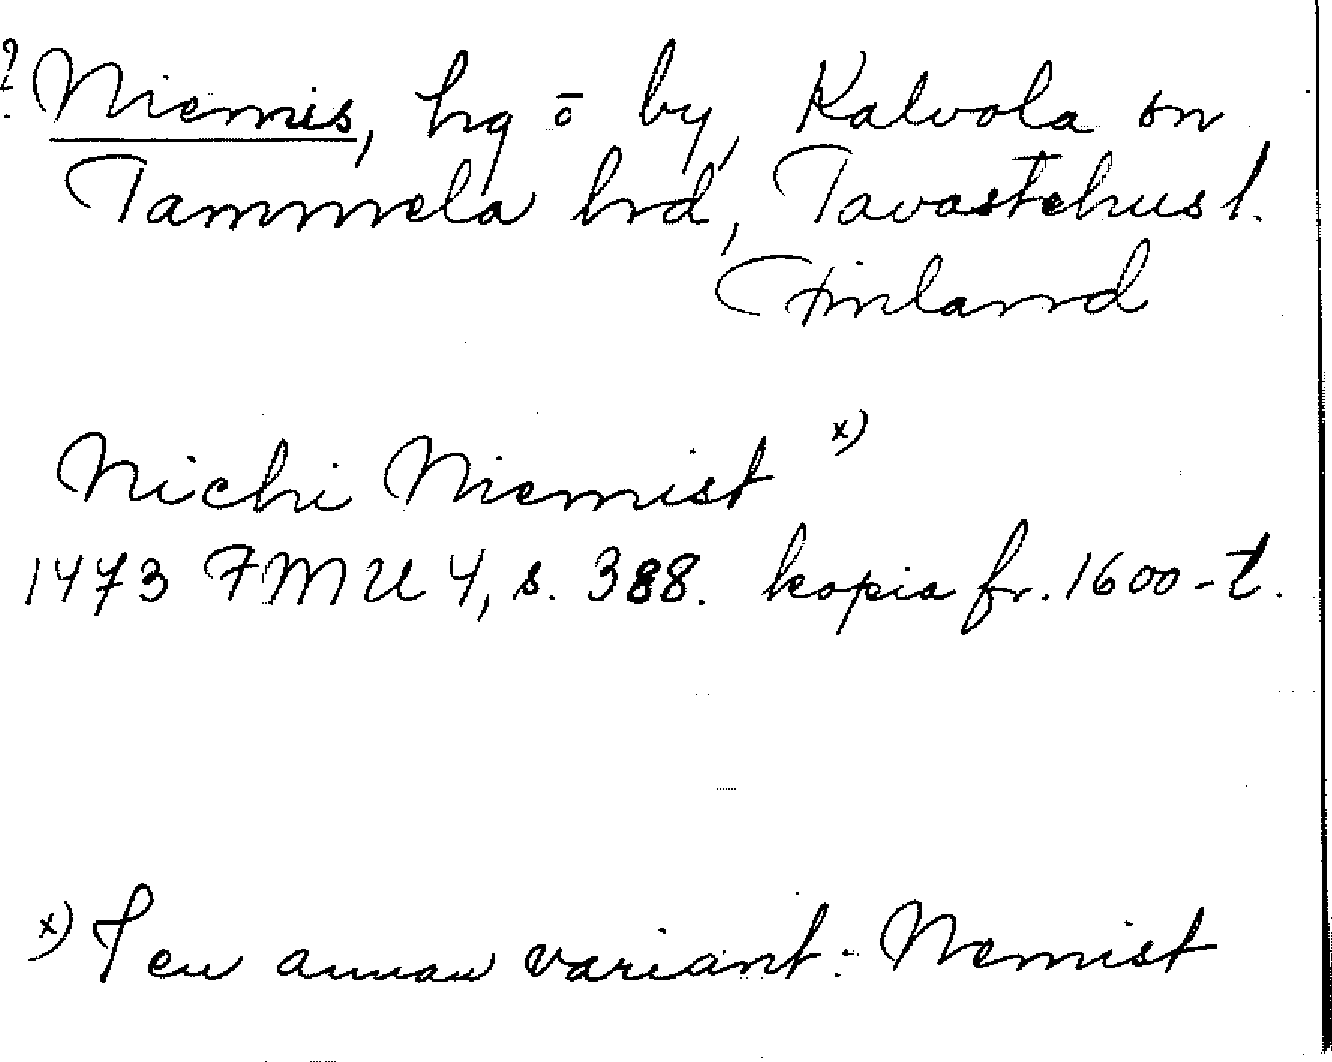 ? Niemis, hg o by, Kalvola sn
Tammela hrd, Tavastehus l.
Finland
Nichi Niemist x)
1473 FMU 4, s. 388. kopia fr. 1600-t.
x) I en annan variant: Nemist